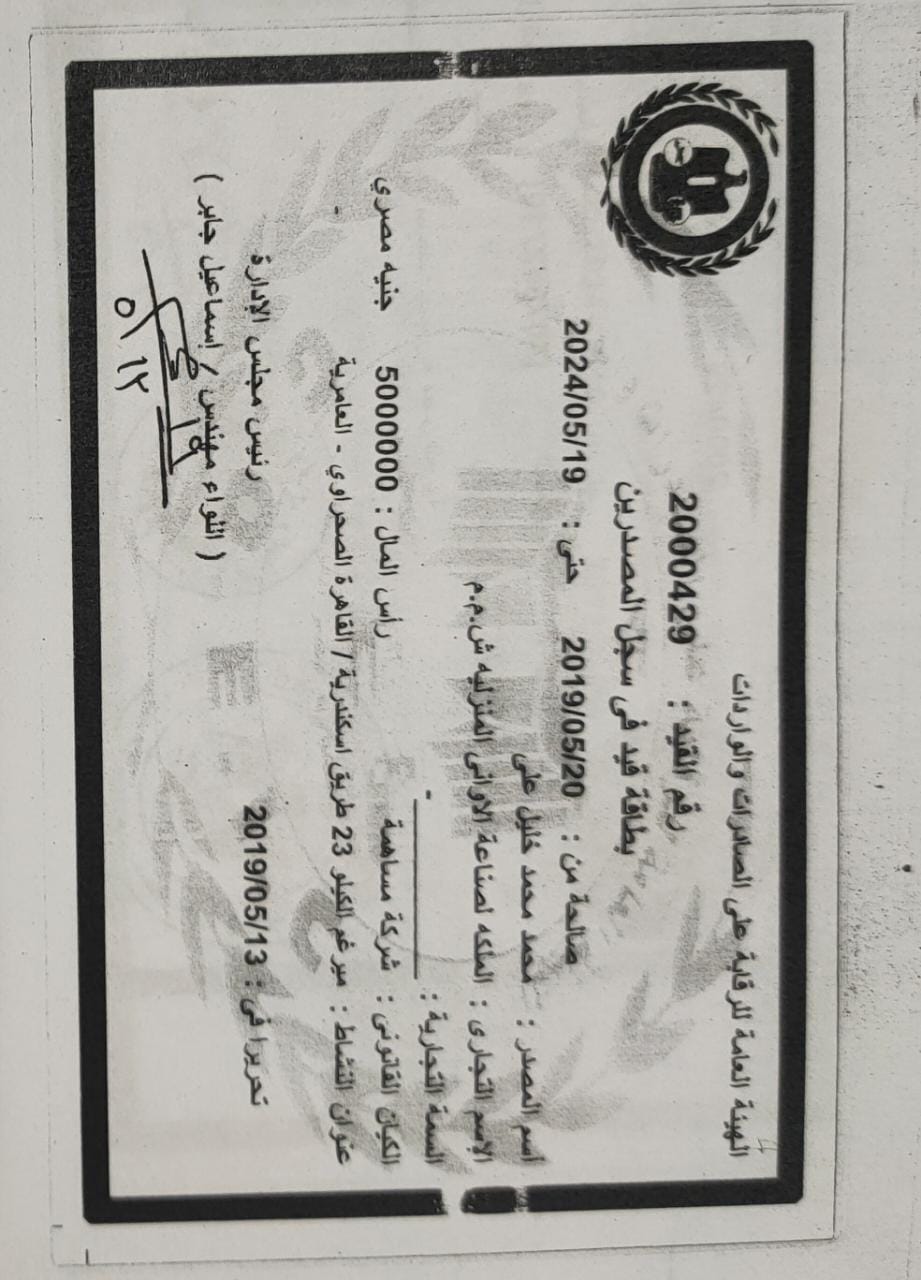 الهيئة العامة للرقابة على الصادرات والواردات
رقم القيد : 2000429
بطاقة قيد فى سجل المصدرين
صالحة من : 2019/05/20 حتى : 2024/05/19
أسم المصدر : محمد محمد خليل على
الإسم التجارى : الملكه لصناعة الاوانى المنزليه ش.م.م
السمة التجارية : -
الكيان القانونى : شركة مساهمة رأس المال : 5000000 جنيه مصري
عنوان النشاط : ميرغم الكيلو 23 طريق اسكندرية / القاهرة الصحراوي - العامرية -
تحريرا فى : 2019/05/13
رئيس مجلس الإدارة
( اللواء مهندس / إسماعيل جابر )